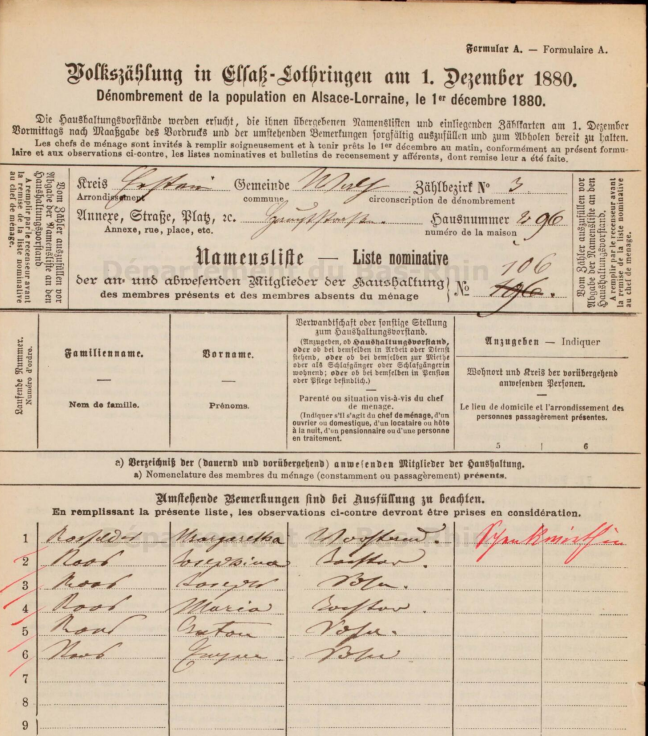 Formular A. — Formulaire A.
Volkszählung in Elsaß-Lothringen am 1. Dezember 1880.
Dénombrement de la population en Alsace-Lorraine, le 1er décembre 1880.
Die Haushaltungsvorstände werden ersucht, die ihnen übergebenen Namenslisten und einliegenden Zählkarten am 1. Dezember
Vormittags nach Maaßgabe des Vordrucks und der umstehenden Bemerkungen sorgfältig auszufüllen und zum Abholen bereit zu halten.
Les chefs de ménage sont invités à remplir soigneusement et à tenir prêts le 1er décembre au matin, conformément au présent formu-
laire et aux observations ci-contre, les listes nominatives et bulletins de recensement y afférents, dont remise leur a été faite.
Vom Zähler auszufüllen vor
Abgabe der Namensliste an den
Haushaltungsvorstand.
A remplir par le recenseur avant
la remise de la liste nominative
au chef de ménage.
Kreis Erstein Gemeinde Zählbezirk No 3.
Arrondissement commune circonscription de dénombrement
Annexe, Straße, Platz, ꝛc. Hauptstraße. Hausnummer 296
Annexe, rue, place, etc. numéro de la maison
Namensliste — Liste nominative
Département du Bas-Rhin
106
der an- und abwesenden Mitglieder der Haushaltung } No 196.
des membres présents et des membres absents du ménage
Vom Zähler auszufüllen vor
Abgabe der Namensliste an den
Haushaltungsvorstand.
A remplir par le recenseur avant
la remise de la liste nominative
au chef de ménage.
Laufende Nummer.
Numéro d'ordre.
Familienname.
Nom de famille.
Vorname.
Prénoms.
Verwandtschaft oder sonstige Stellung
zum Haushaltungsvorstand.
(Anzugeben, ob Haushaltungsvorstand,
oder ob bei demselben in Arbeit oder Dienst
stehend, oder ob bei demselben zur Miethe
oder als Schlafgänger oder Schlafgängerin
wohnend; oder ob bei demselben in Pension
oder Pflege befindlich.)
Parenté ou situation vis-à-vis du chef
de ménage.
(Indiquer s'il s'agit du chef de ménage, d'un
ouvrier ou domestique, d'un locataire ou hôte
à la nuit, d'un pensionnaire ou d'une personne
en traitement.
Anzugeben — Indiquer
Wohnort und Kreis der vorübergehend
anwesenden Personen.
Le lieu de domicile et l'arrondissement des
personnes passagèrement présentes.
5 6
a) Verzeichniß der (dauernd und vorübergehend) anwesenden Mitglieder der Haushaltung.
a) Nomenclature des membres du ménage (constamment ou passagèrement) présents.
Umstehende Bemerkungen sind bei Ausfüllung zu beachten.
En remplissant la présente liste, les observations ci-contre devront être prises en considération.
1 Rosfelder Margaretha Vorstand. Schenkwirthin
2 Roos Josephina Tochter.
3 Roos Joseph Sohn.
4 Roos Maria Tochter.
5 Roos Anton Sohn.
6 Roos Sohn
7
8
9